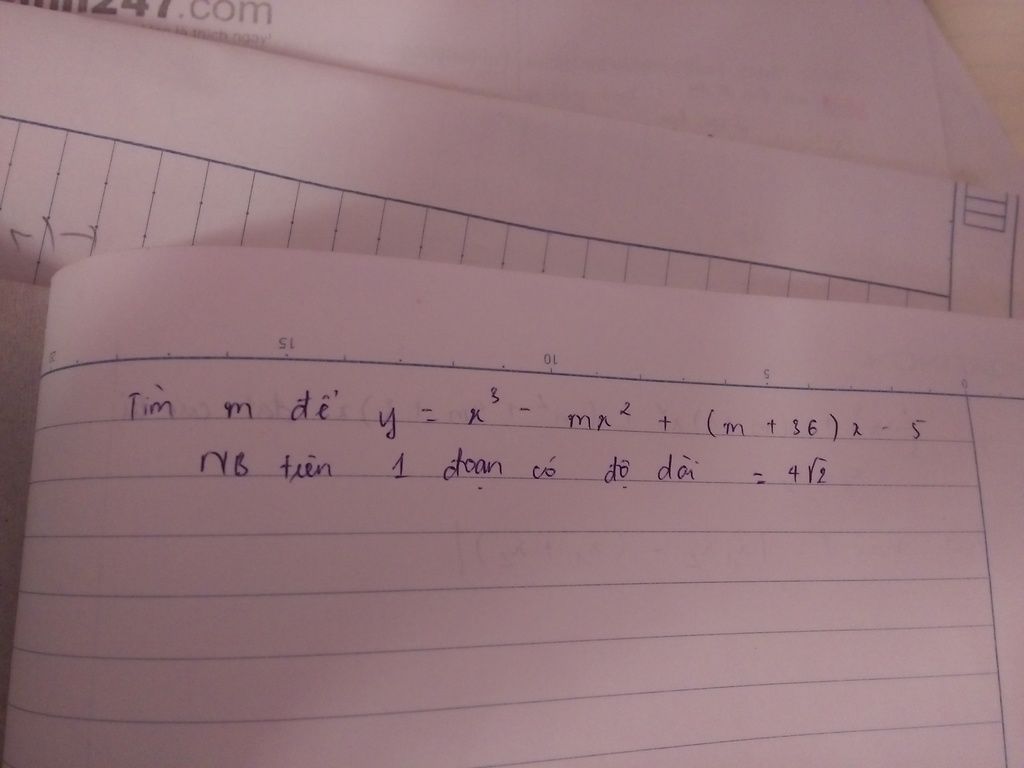 247.com
là thích ngay!
15
10
5
0
Tìm m để y = x³ - mx² + (m + 36) x - 5
NB trên 1 đoạn có độ dài = 4√2